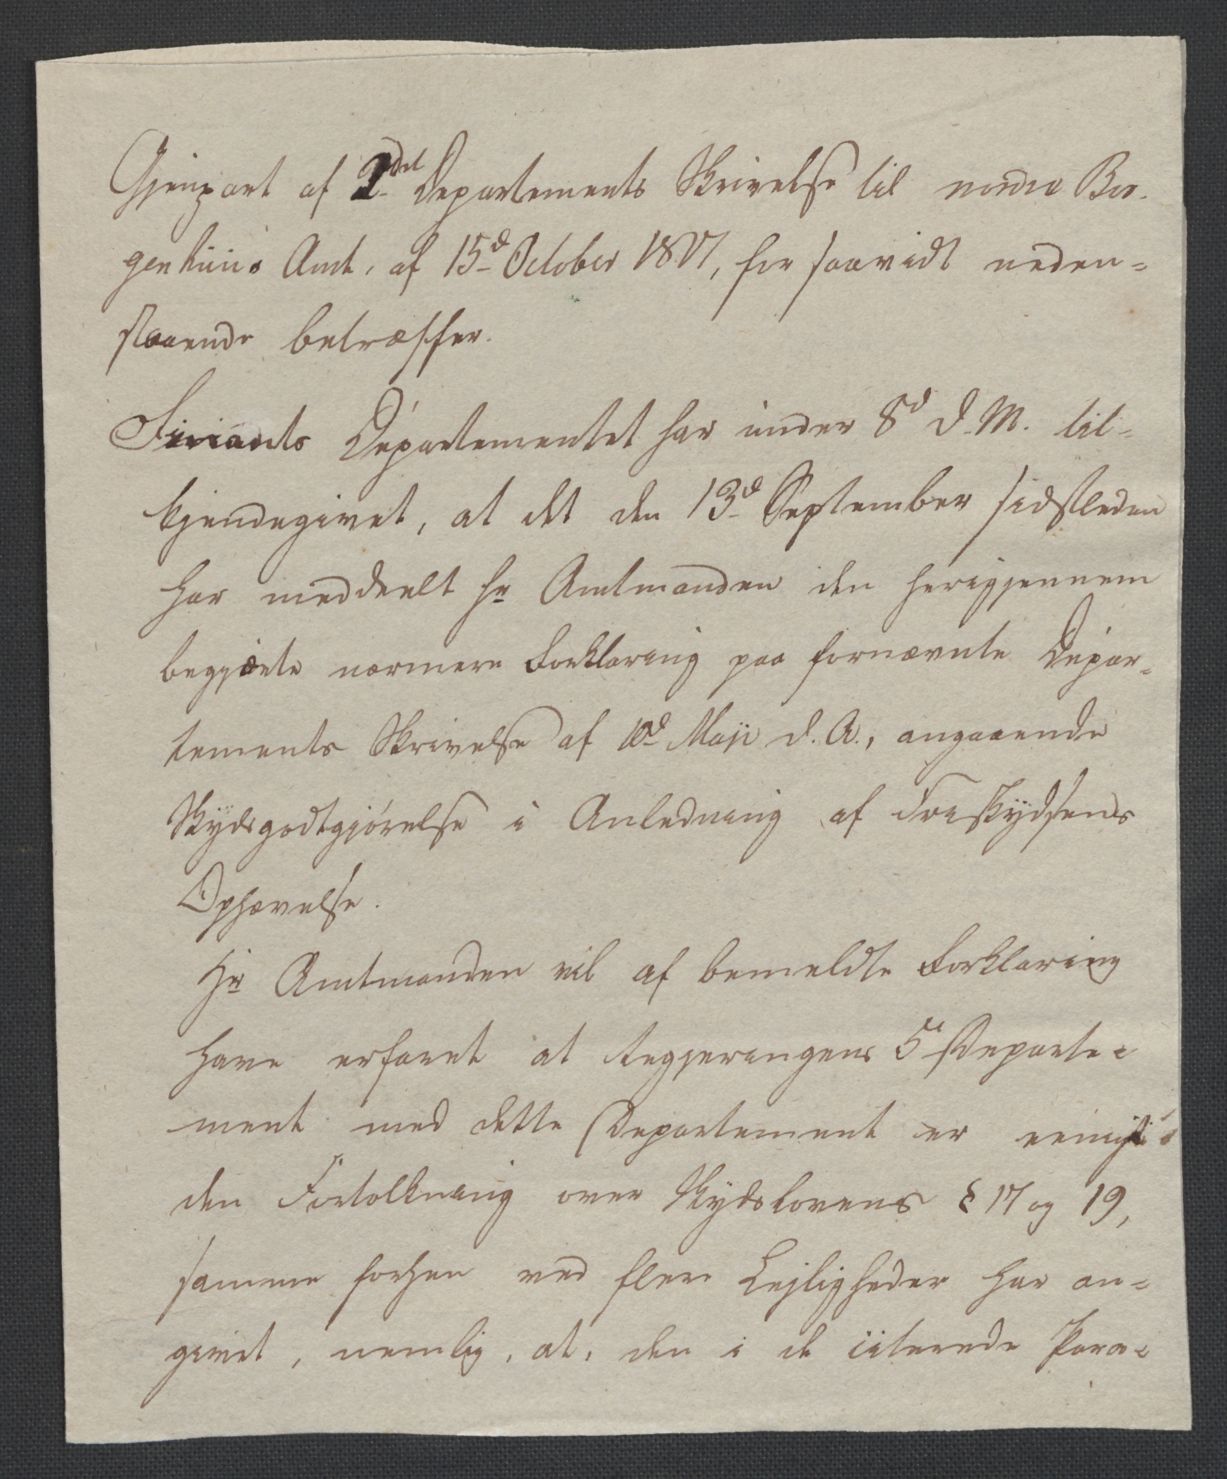 Gjenpart af 2det Departements Skrivelse til nordre Ber-
genhuus Amt, af 15d October 1817, for saavidt neden-
staaende betræffer.
Finants Departementet har under 8d d. M. til-
kjendegivet, at det den 13d September sidstleden
har meddeelt Hr Amtmanden den herigjennem
begjærte nærmere Forklaring paa fornævnte Depar-
tements Skrivelse af 10d Maji d. A., angaaende
Skydsgodtgjørelse i Anledning af Friskydsens
Ophævelse.
Hr Amtmanden vil af bemeldte Forklaring
have erfaret at Regjeringens 5te Departe-
ment med dette Departement er eenigt i
den Fortolkning over Skydslovens § 17 og 19,
samme forhen ved flere Lejligheder har an-
givet, nemlig, at, den i de citerede Para-